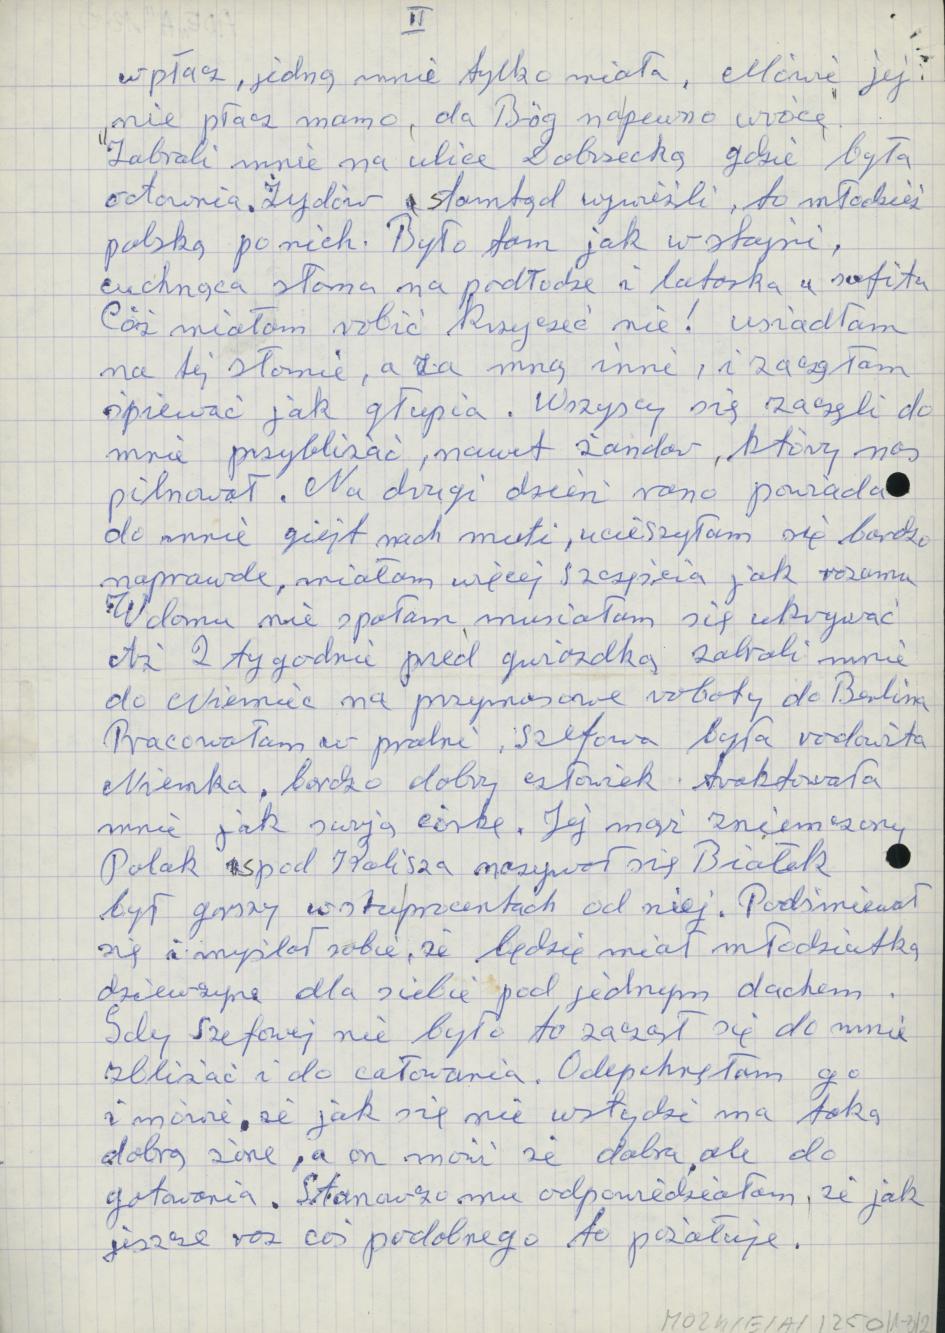 II
w płacz, jedną mnie tylko miała, Mówię jej:
"nie płacz mamo, da Bóg napewno wrócę"
Zabrali mnie na ulice Dobrzecką gdzie była
octownia. Żydów stamtąd wywieźli, to młodzież
polską po nich. Było tam jak w stajni,
cuchnąca słoma na podłodze i latarka u sufitu
Cóż miałam robić krzyczeć nie! usiadłam
na tej słomie, a za mną inni, i zaczęłam
śpiewać jak głupia. Wszyscy się zaczęli do
mnie przybliżać, nawet żandar, który nas
pilnował. Na drugi dzień rano powiada
do mnie giejt nach muti, ucieszyłam się bardzo
naprawde, miałam więcej szczęścia jak rozumu
W domu nie spałam musiałam się ukrywać
Aż 2 tygodnie pred gwiazdką zabrali mnie
do Niemiec na przymusowe roboty do Berlina
Pracowałam w pralni, szefowa była rodowita
Niemka, bardzo dobry człowiek. traktowała
mnie jak swoją córkę. Jej mąż zniemczony
Polak spod Kalisza nazywał się Białek
był gorszy w stuprocentach od niej. Podśmiewał
się i myślał sobie, że będzię miał młodziutką
dziewczynę dla siebie pod jednym dachem.
Gdy szefowej nie było to zaczął się do mnie
zbliżać i do całowania. Odepchnęłam go
i mówię, że jak się nie wstydzi ma taką
dobrą żonę, a on mówi że dobra, ale do
gotowania. Stanowczo mu odpowiedziałam, że jak
jeszcze raz coś podobnego to pożałuje.